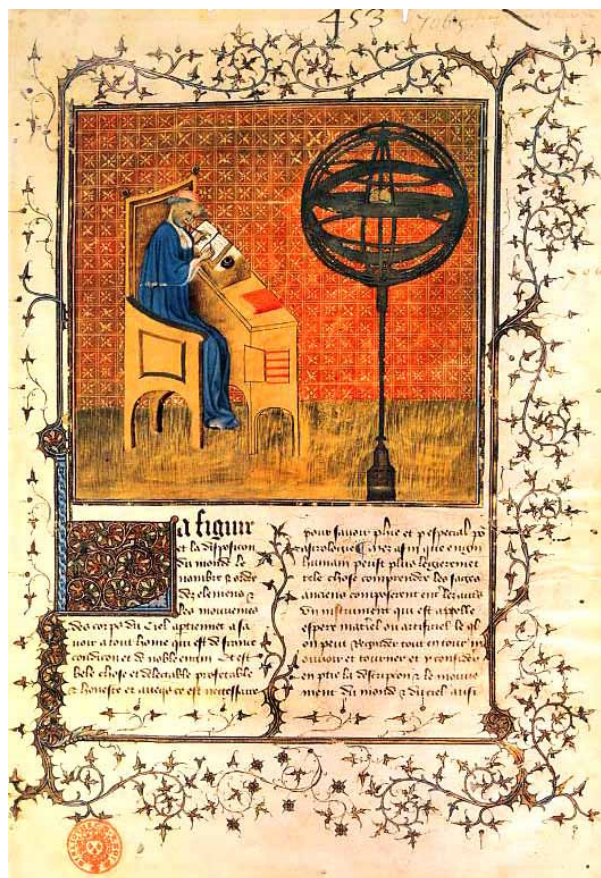 453
7065
a figure
et la disposicion
du monde le
nombre & ordre
dez elemens &
les mouvemens
des corps du ciel aptiennet a sa
voir a tout home qui est de france
condicion et de noble engin Et est
bele chose et delectable profetable
& honeste et aveqs ce est necessaire
pour savoir ph̄ie et p especial po᷑
astrologie Car afin que engin
humain peust plus legierement
tele chose comprendre les sages
anciens composerent
un instrument qui est appelle
espere materiel ou artificiel le ql
on peut regarder tout entour
mouvoir et tourner et y considerer
en ptie la descripcion & le mouve
ment du monde & du ciel aussi